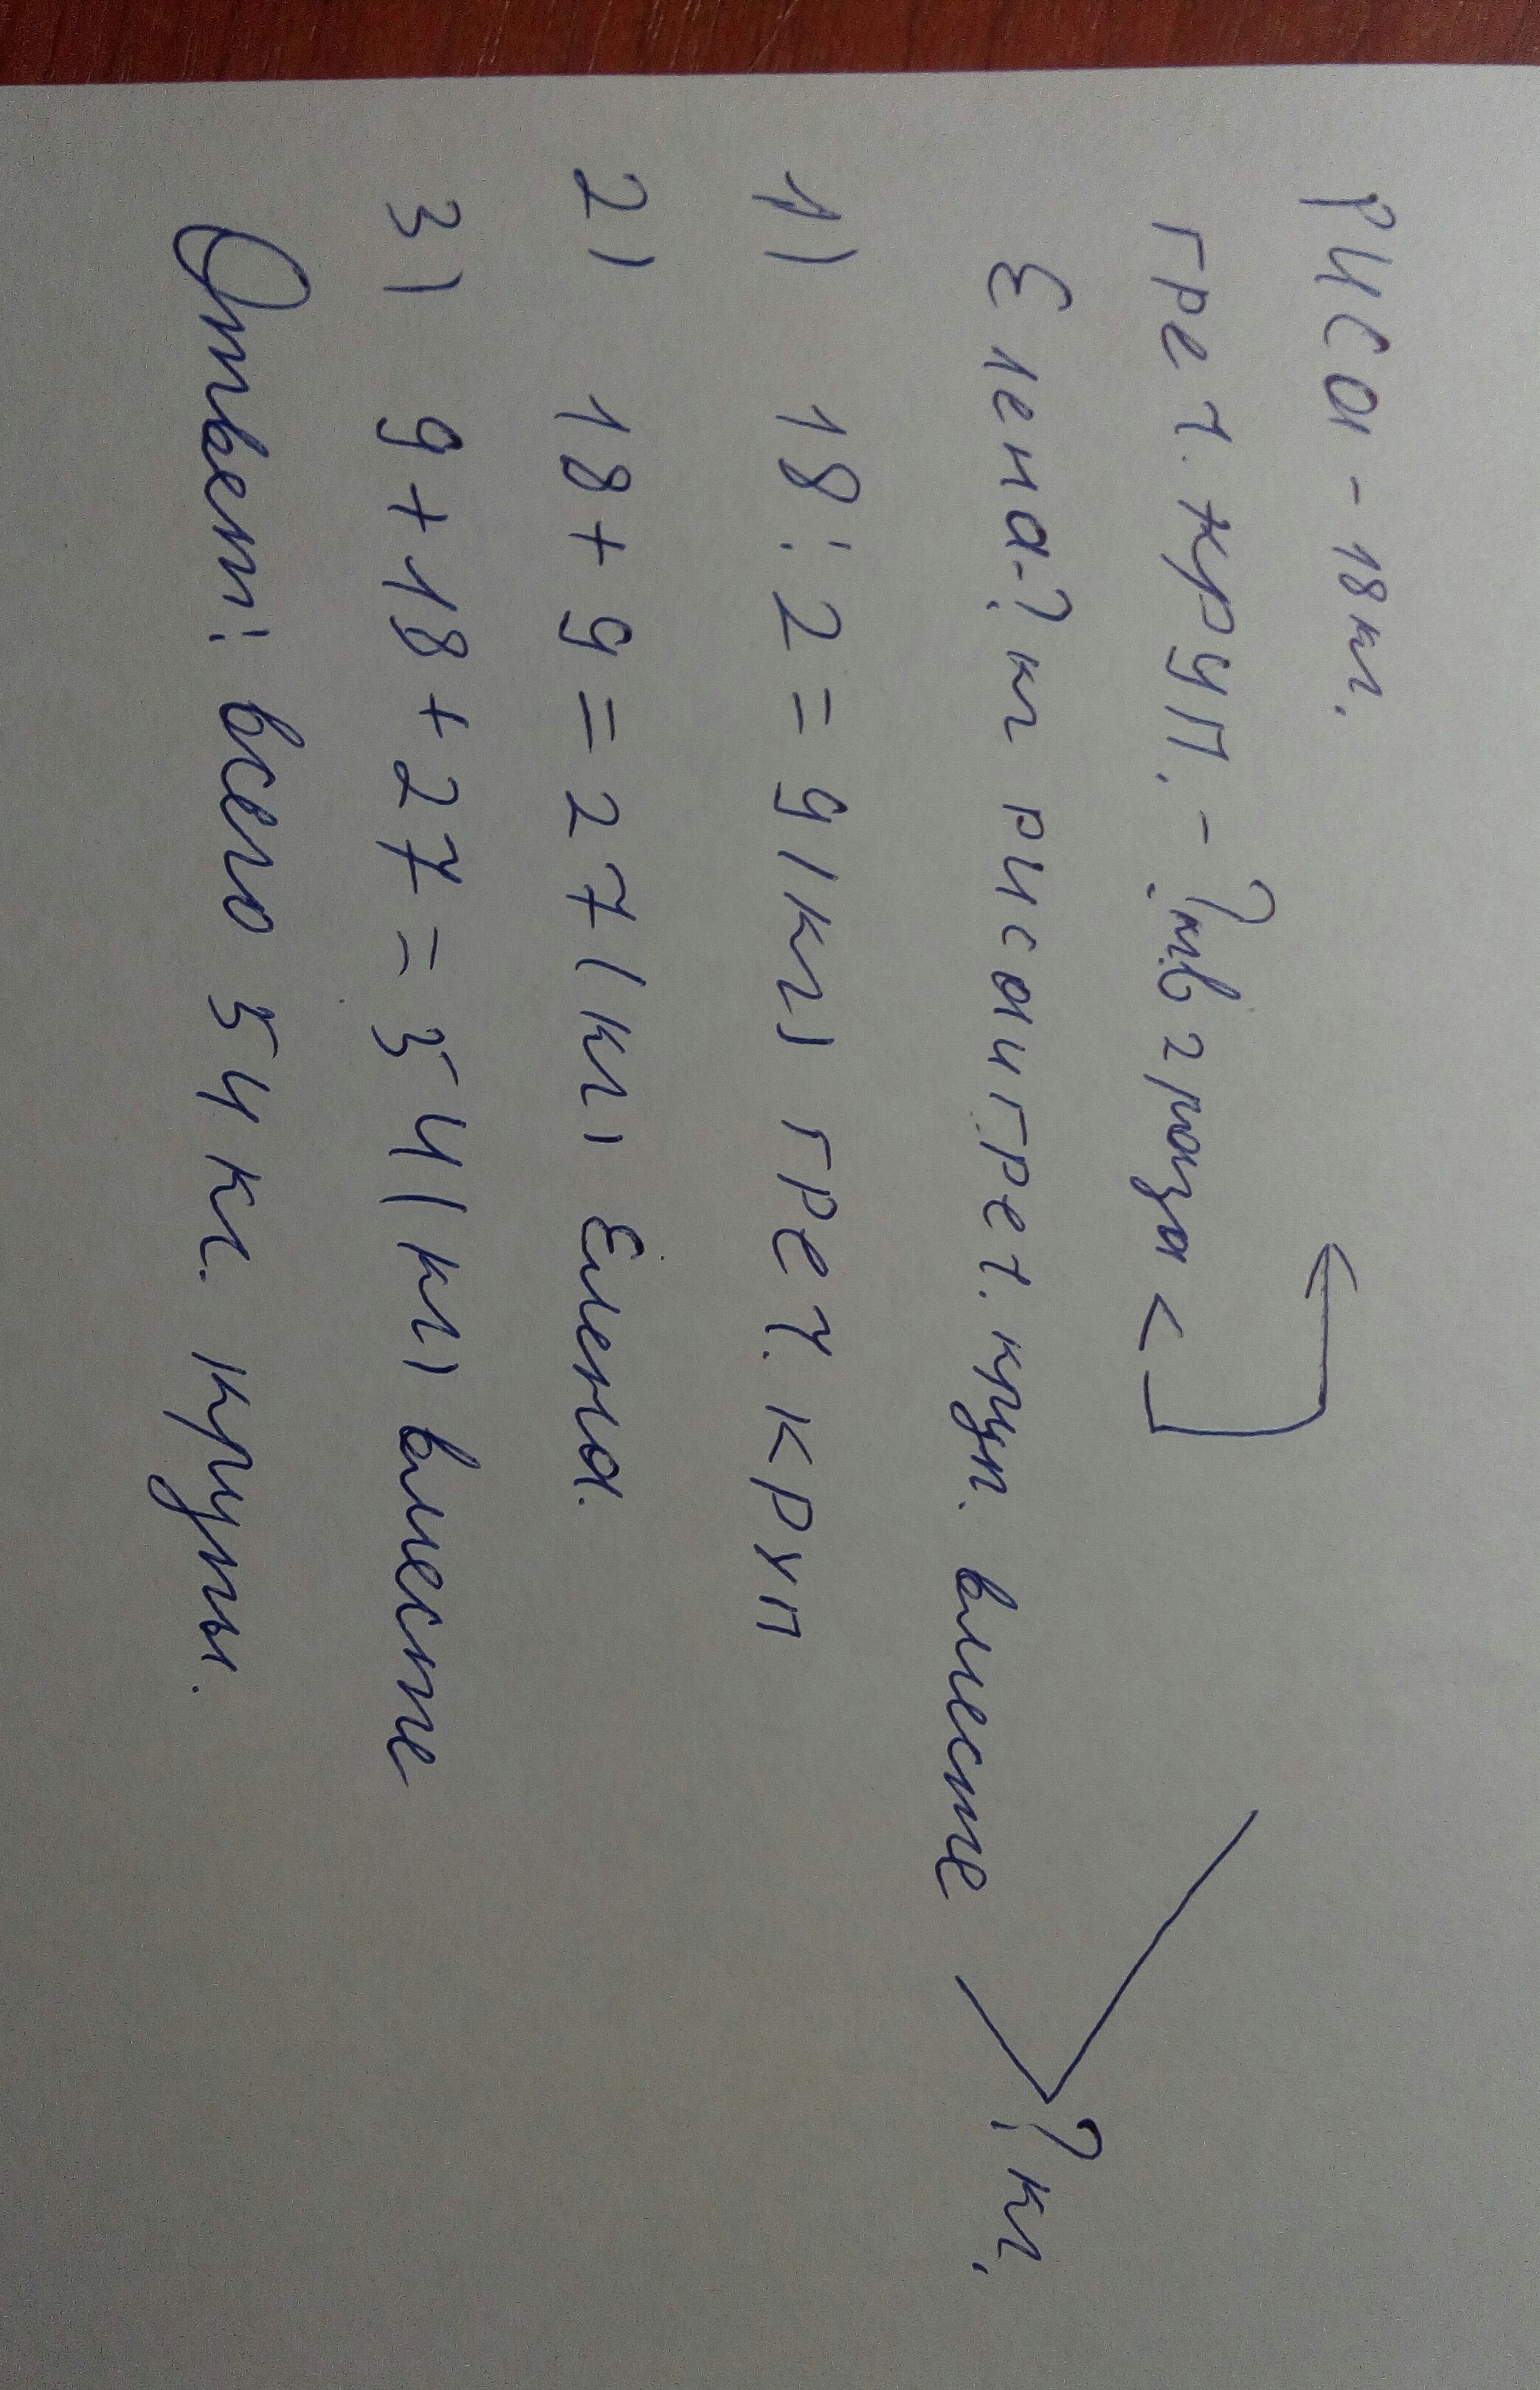 РИСа - 18 кг.
греч. круп. - ? кг. в 2 раза <
Елена - ? кг риса и греч. круп. вместе
? кг.
1) 18 : 2 = 9 (кг) греч. круп
2) 18 + 9 = 27 (кг) Елена.
3) 9 + 18 + 27 = 54 (кг) вместе
Ответ: всего 54 кг. крупы.